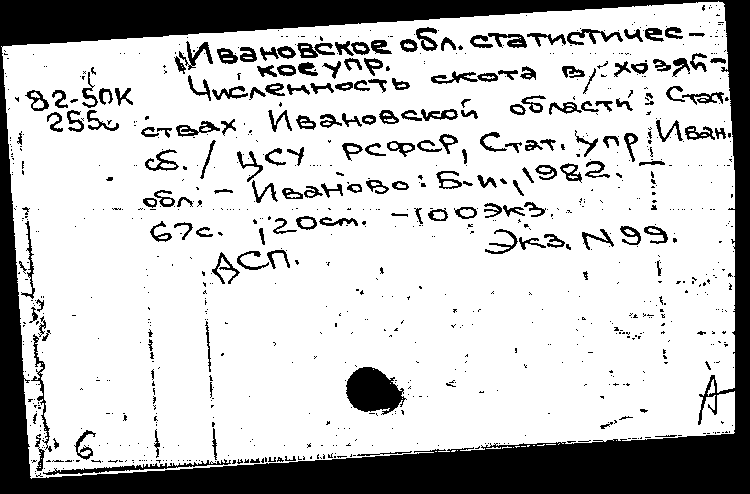 Ивановское обл. статистичес-
кое упр.
82-50К Численность скота в хозяй-
255с ствах Ивановской области: Стат.
сб. / ЦСУ РСФСР, Стат. упр Иван.
обл. - Иваново: Б.и., 1982. -
67с. ; 20 см. - 100 экз.
Экз. N 99.
ДСП.
А
6